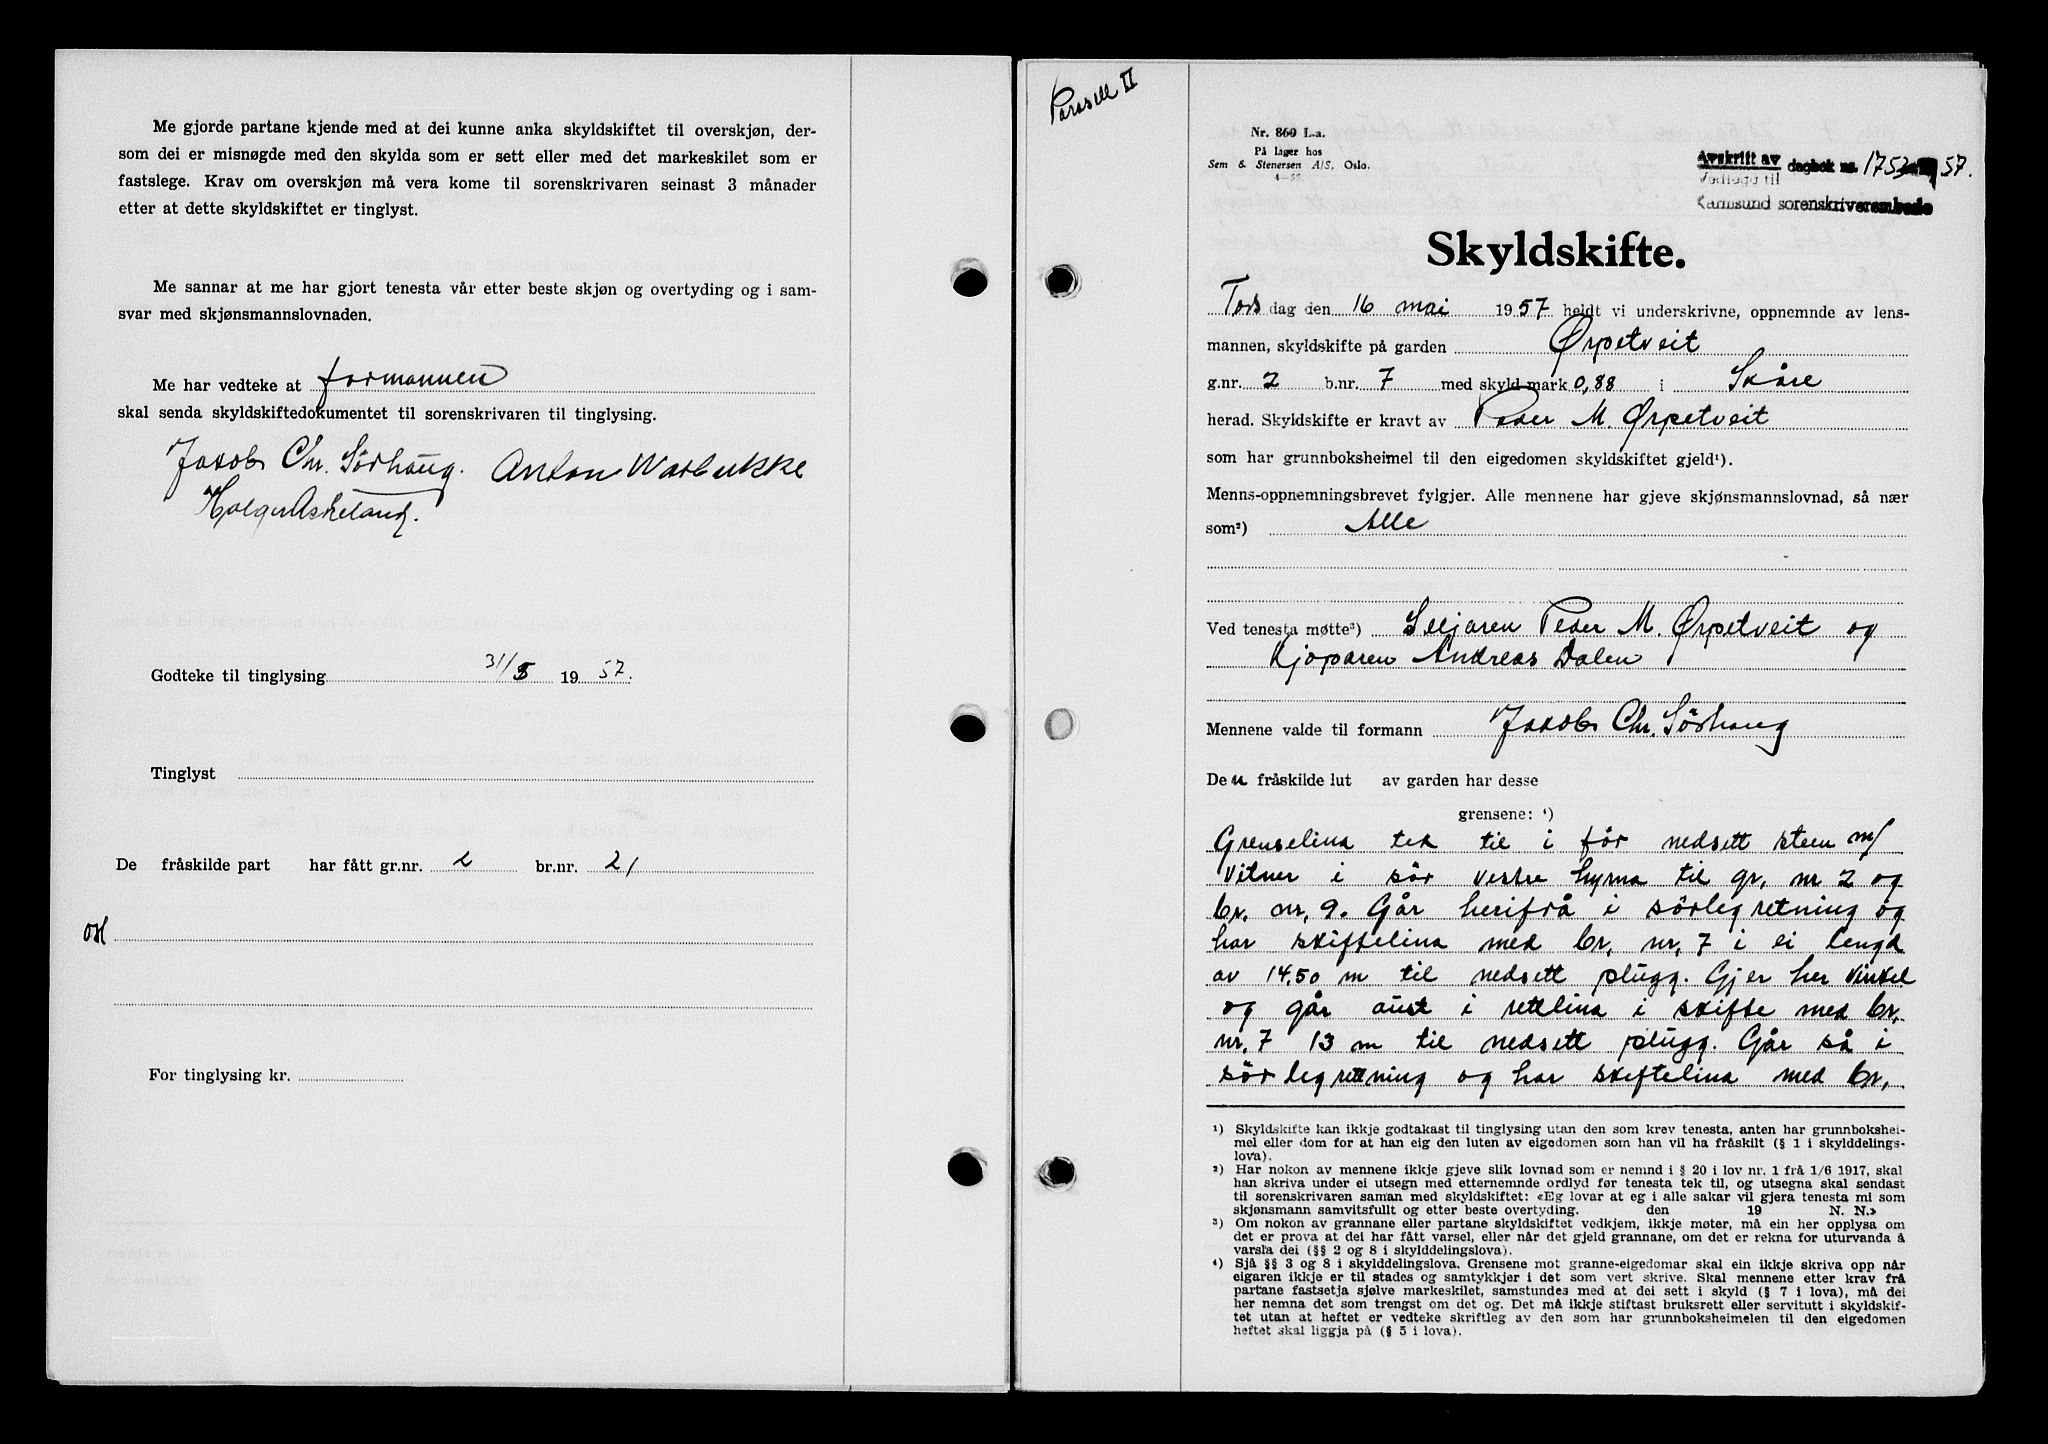 Me gjorde partane kjende med at dei kunne anka skyldskiftet til overskjøn, der-
som dei er misnøgde med den skylda som er sett eller med det markeskilet som er
fastslege. Krav om overskjøn må vera kome til sorenskrivaren seinast 3 månader
etter at dette skyldskiftet er tinglyst.
Me sannar at me har gjort tenesta vår etter beste skjøn og overtyding og i sam-
svar med skjønsmannslovnaden.
Me har vedteke at formannen
skal senda skyldskiftedokumentet til sorenskrivaren til tinglysing.
Jakob Chr. Sörhaug. Anton Warbukke
Holger Askeland.
Godteke til tinglysing 31/5 1957.
Tinglyst
De fråskilde part har fått gr.nr. 2 br.nr. 21
For tinglysing kr.
Parsell II
Nr. 860 L.a.
På lager hos
Sem & Stenersen A/S, Oslo.
4—56.
Avskrift av
Vedlegg til
dagbok nr. 1753 57.
Karmsund sorenskriverembede
Skyldskifte.
Torsdag den 16 mai 1957 heldt vi underskrivne, oppnemnde av lens-
mannen, skyldskifte på garden Ørpetveit
g.nr. 2 b.nr. 7 med skyld mark 0,88 i Skåre
herad. Skyldskifte er kravt av Peder M. Ørpetveit
som har grunnboksheimel til den eigedomen skyldskiftet gjeld¹).
Menns-oppnemningsbrevet fylgjer. Alle mennene har gjeve skjønsmannslovnad, så nær
som²) Alle
Ved tenesta møtte³) Seljaren Peder M. Ørpetveit og
kjøparen Andreas Dalen
Mennene valde til formann Jakob Chr. Sörhaug
Den fråskilde lut av garden har desse
grensene: ⁴)
Grenselina tek til i før nedsett steen m/
vitner i sör vestre hyrna til gr. nr 2 og
br. nr. 9. Går herifrå i sörleg retning og
har skiftelina med br. nr. 7 i ei lengd
av 14,50 m til nedsett plugg. Gjer her vinkel
og går aust i rettlina i skifte med br.
nr. 7 13 m til nedsett plugg. Går så i
sörleg rettning og har skiftelina med br.
¹) Skyldskifte kan ikkje godtakast til tinglysing utan den som krev tenesta, anten har grunnbokshei-
mel eller dom for at han eig den luten av eigedomen som han vil ha fråskilt (§ 1 i skylddelings-
lova).
²) Har nokon av mennene ikkje gjeve slik lovnad som er nemnd i § 20 i lov nr. 1 frå 1/6 1917, skal
han skriva under ei utsegn med etternemnde ordlyd før tenesta tek til, og utsegna skal sendast
til sorenskrivaren saman med skyldskiftet: «Eg lovar at eg i alle sakar vil gjera tenesta mi som
skjønsmann samvitsfullt og etter beste overtyding. den 19 N. N.»
³) Om nokon av grannane eller partane skyldskiftet vedkjem, ikkje møter, må ein her opplysa om
det er prova at dei har fått varsel, eller når det gjeld grannane, om det er rekna for uturvanda å
varsla dei (§§ 2 og 8 i skylddelingslova).
⁴) Sjå §§ 3 og 8 i skylddelingslova. Grensene mot granne-eigedomar skal ein ikkje skriva opp når
eigaren ikkje er til stades og samtykkjer i det som vert skrive. Skal mennene etter krav frå
partane fastsetja sjølve markeskilet, samstundes med at dei sett i skyld (§ 7 i lova), må dei
her nemna det som trengst om det og. Det må ikkje stiftast bruksrett eller servitutt i skyldskif-
tet utan at heftet er vedteke skriftleg av den som har grunnboksheimelen til den eigedomen
heftet skal liggja på (§ 5 i lova).